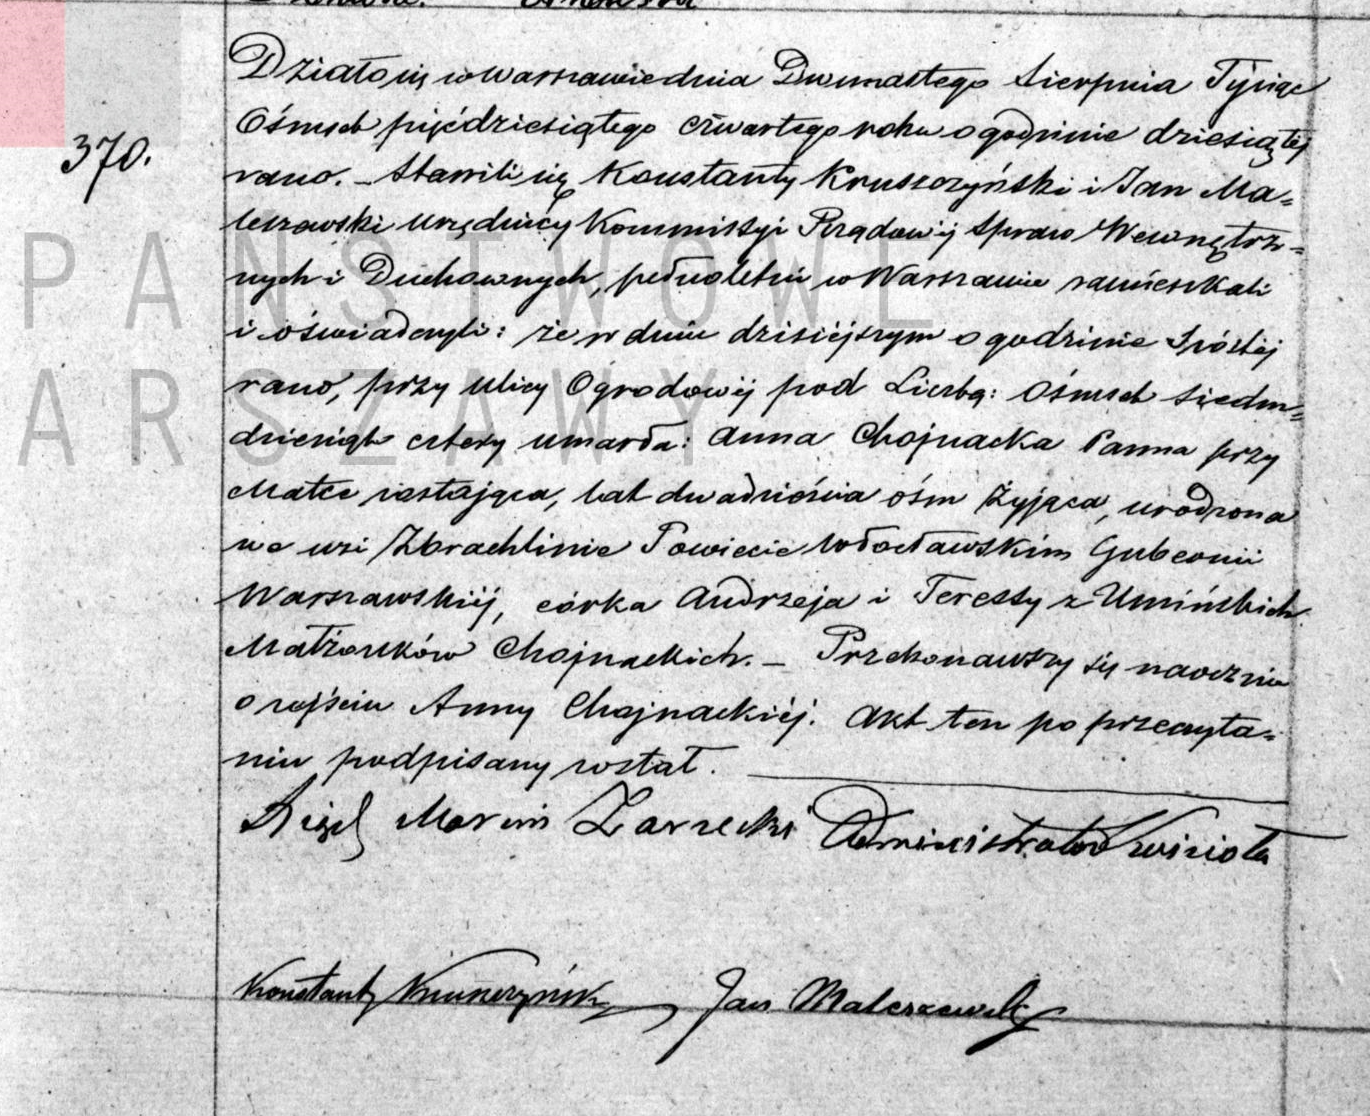 370.
Działo się w Warszawie dnia Dwunastego Sierpnia Tysiąc
Ośmset pięćdziesiątego czwartego roku o godzinie dziesiątej
rano. – Stawili się Konstanty Kruszczyński i Jan Ma=
leszewski urzędnicy Kommissyi Rządowéj Spraw Wewnętrz=
nych i Duchownych, pełnoletni w Warszawie zamieszkali
i oświadczyli: że w dniu dzisiéjszym o godzinie szóstéj
rano, przy ulicy Ogrodowéj pod Liczbą: Ośmset siedm=
dziesiąt cztery umarła: Anna Chojnacka Panna przy
Matce zostająca, lat dwadzieścia ośm żyjąca, urodzona
we wsi Zbrachlinie Powiecie Włocławskim Gubernii
Warszawskiéj, córka Andrzeja i Teressy z Umińskich
Małżonków Chojnackich. – Przekonawszy się naocznie
o zejściu Anny Chojnackiéj. Akt ten po przeczyta=
niu podpisany został.
Ksiądz Marcin Zarzecki Administrator
Konstanty Kruszczyński Jan Maleszewski
PAŃSTWOWE
ARSZAWY